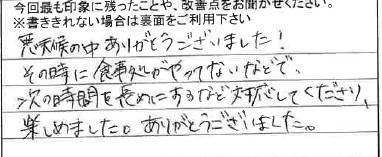 今回最も印象に残ったことや、改善点をお聞かせください。
※書ききれない場合は裏面をご利用下さい
悪天候の中ありがとうございました!
その時に食事処がやってないなどで、
次の時間を長めにするなど対応してくださり、
楽しめました。ありがとうございました。